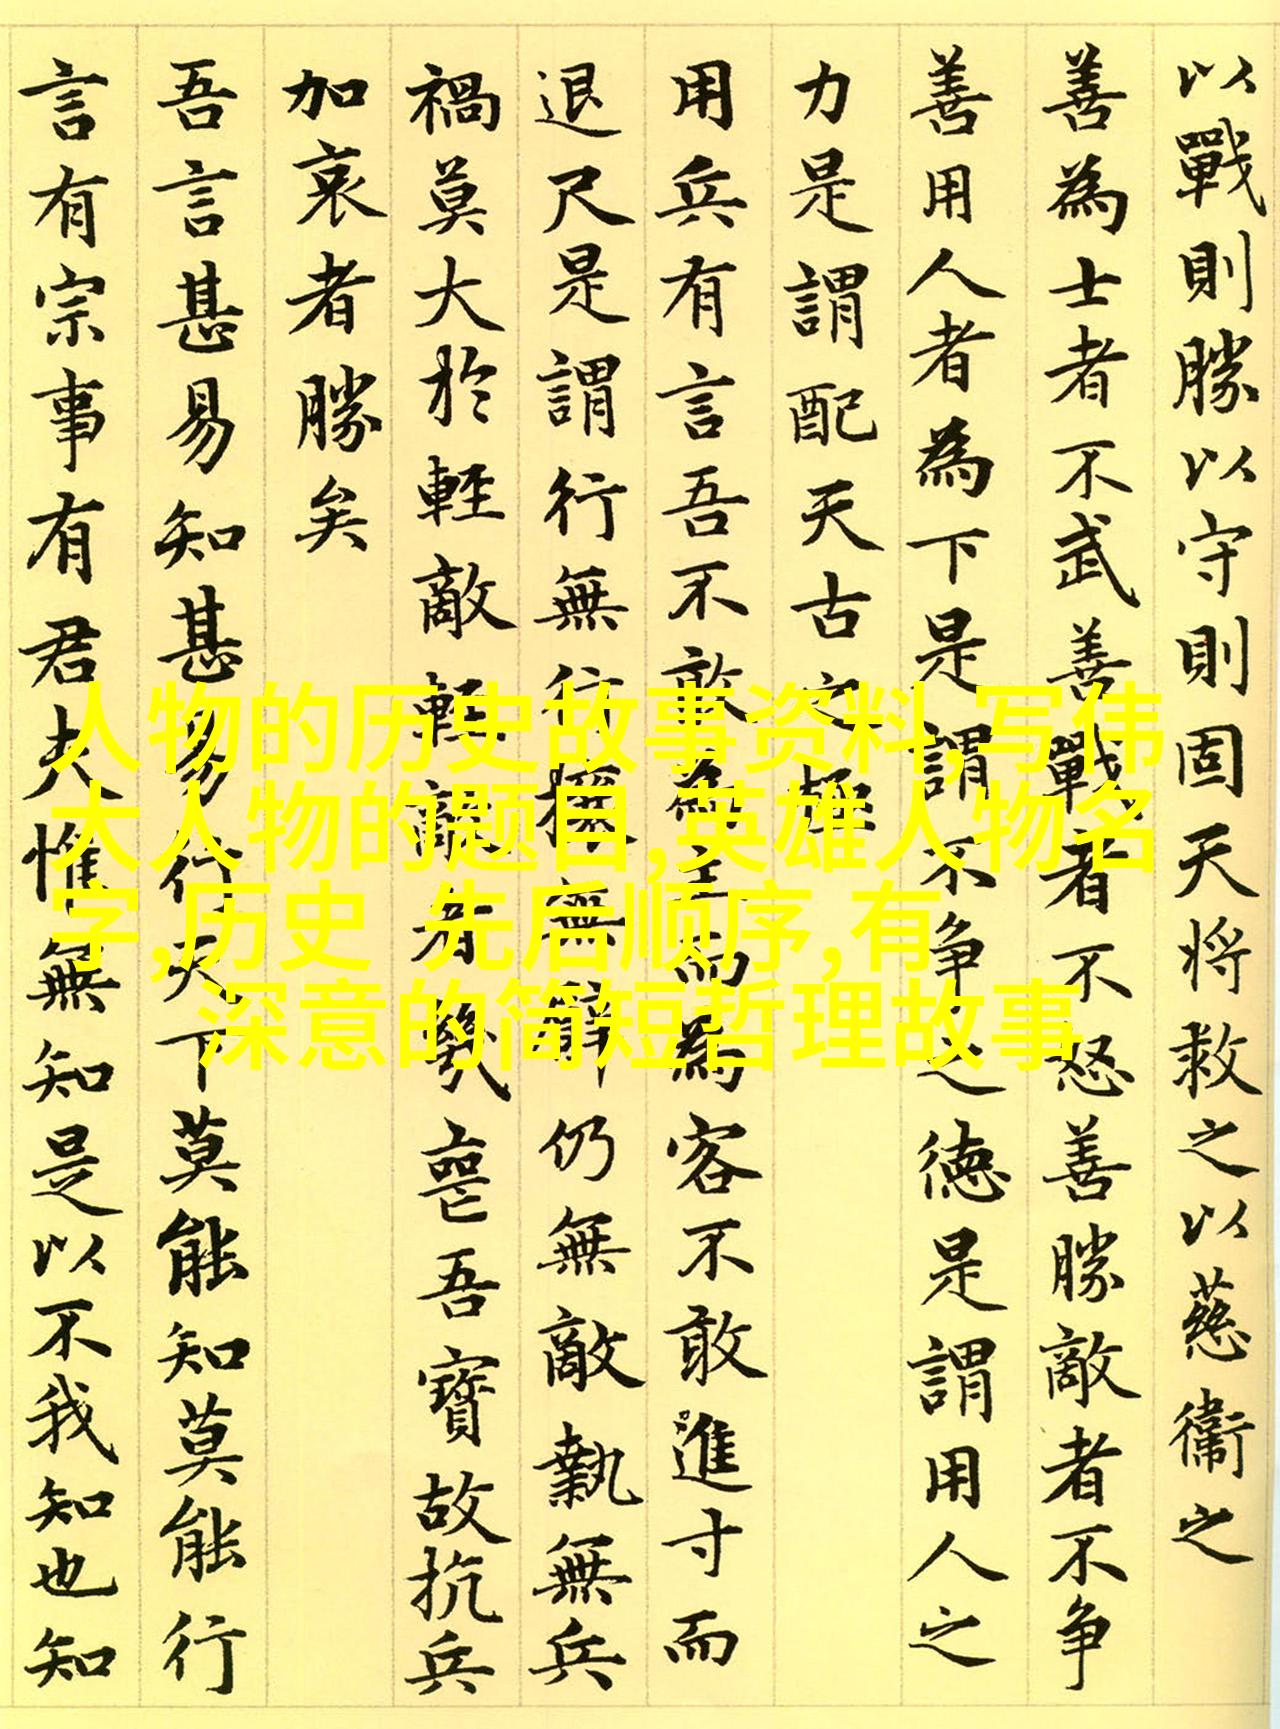 以戰則勝以守則固天將救之以慈衛之
善為士者不武善戰者不怒善勝敵者不争
善用人者為下是謂不争之德是謂用人之
力是謂配天古之極
用兵有言吾不敢為主而為客不敢進寸而
退尺是謂行無行攘無臂仍無敵執無兵
禍莫大於輕敵輕敵者幾喪吾寶故抗兵
加哀者勝矣
吾言甚易知甚易行天下莫能知莫能行
言有宗事有君夫惟無知是以不我知也知
人物的历史故事资料,写伟
大人物的题目,英雄人物名
字,历史 先后顺序,有
深意的简短哲理故事